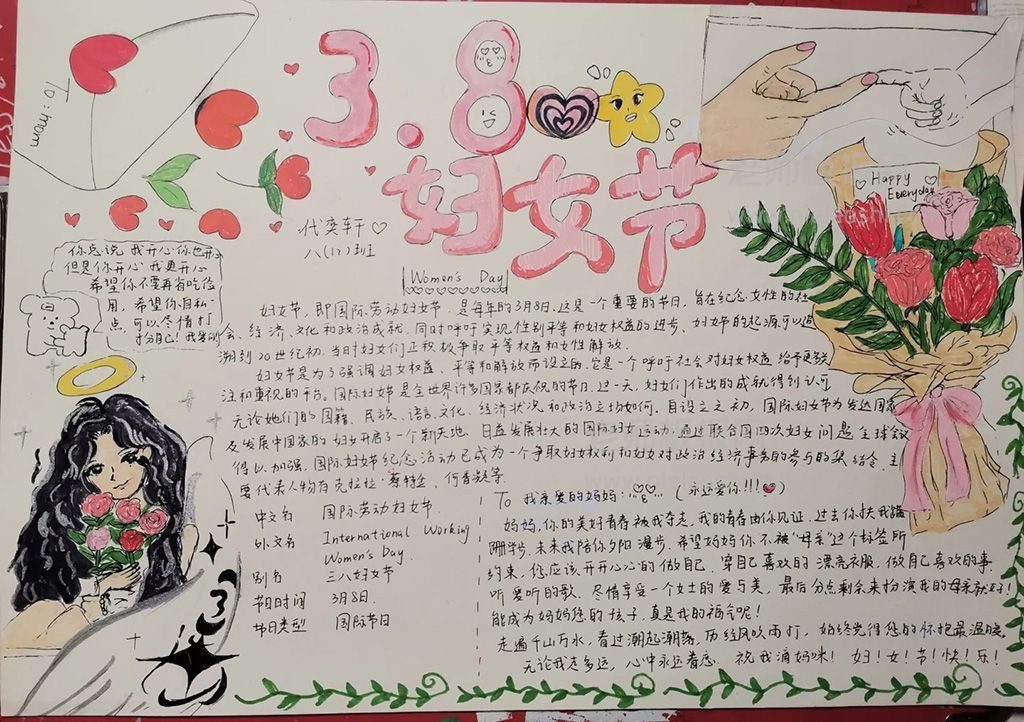 To: mom
3.8
妇女节
Happy
Everyday
代奕轩
八(17)班
Women's Day
你总说 我开心你也开心
但是你开心 我更开心
希望你不要再省吃俭
用，希望你自私一
点，可以尽情打
扮自己！我爱你
妇女节，即国际劳动妇女节，是每年的3月8日。这是一个重要的节日，旨在纪念女性的社
会、经济、文化和政治成就，同时呼吁实现性别平等和妇女权益的进步、妇女节的起源可以追
溯到20世纪初，当时妇女们正积极争取平等权益和女性解放。
妇女节是为了强调妇女权益、平等和解放而设立的，它是一个呼吁社会对妇女权益给予更多关
注和重视的平台，国际妇女节是全世界许多国家都庆祝的节日，这一天，妇女们作出的成就得到认可
无论她们的国籍、民族、语言、文化、经济状况和政治立场如何，自设立之初，国际妇女节为发达国家
及发展中国家的妇女开启了一个新天地，日益发展壮大的国际妇女运动，通过联合国四次妇女问题全球会议
得以加强，国际妇女节纪念活动已成为一个争取妇女权利和妇女对政治经济事务的参与的集结令，主
要代表人物有克拉拉·蔡特金、何香凝等.
中文名 国际劳动妇女节
外文名 International Working
Women's Day.
别名 三八妇女节
节日时间 3月8日.
节日类型 国际节日
To 我亲爱的妈妈: (永远爱你!!!)
妈妈，你的美好青春被我夺走，我的青春由你见证，过去你扶我蹒
跚学步，未来我陪你夕阳漫步，希望妈妈你不被“母亲”这个标签所
约束，您应该开开心心的做自己，穿自己喜欢的漂亮衣服，做自己喜欢的事.
听爱听的歌，尽情享受一个女士的爱与美，最后分点剩余来扮演我的母亲就好！
能成为妈妈您的孩子，真是我的福气呢！
走遍千山万水，看过潮起潮落，历经风吹雨打，始终觉得您的怀抱最温暖.
无论我走多远，心中永远有您. 祝我滴妈咪！妇！女！节！快！乐！
3